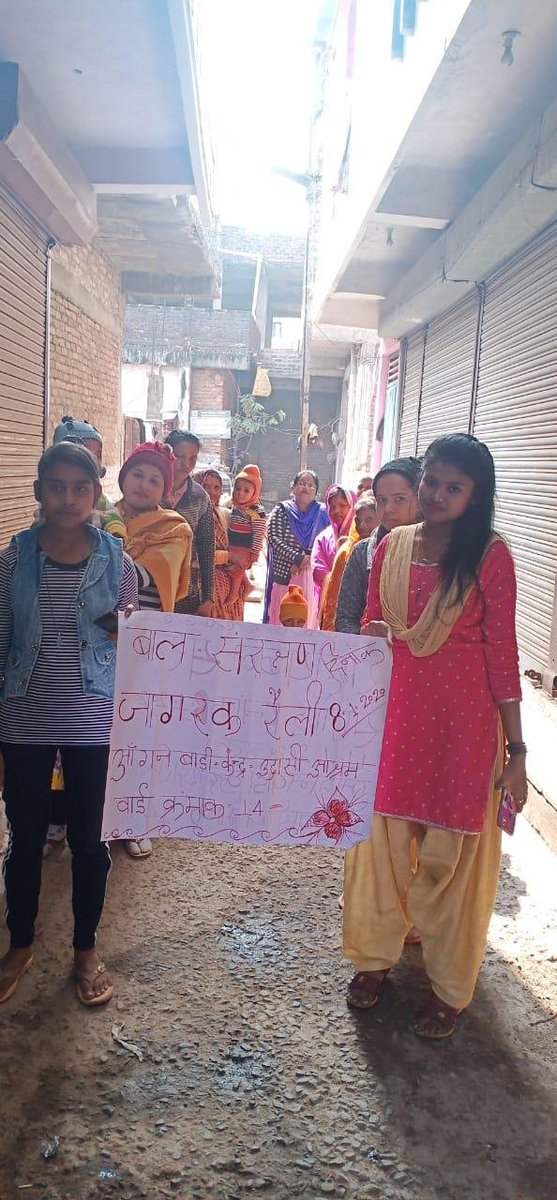 बाल संरक्षण दिनांक
जागरक रैली 8/1/2020
आँगन बाड़ी-केन्द्र-उदासी आश्रम-
वार्ड क्रमांक 14-